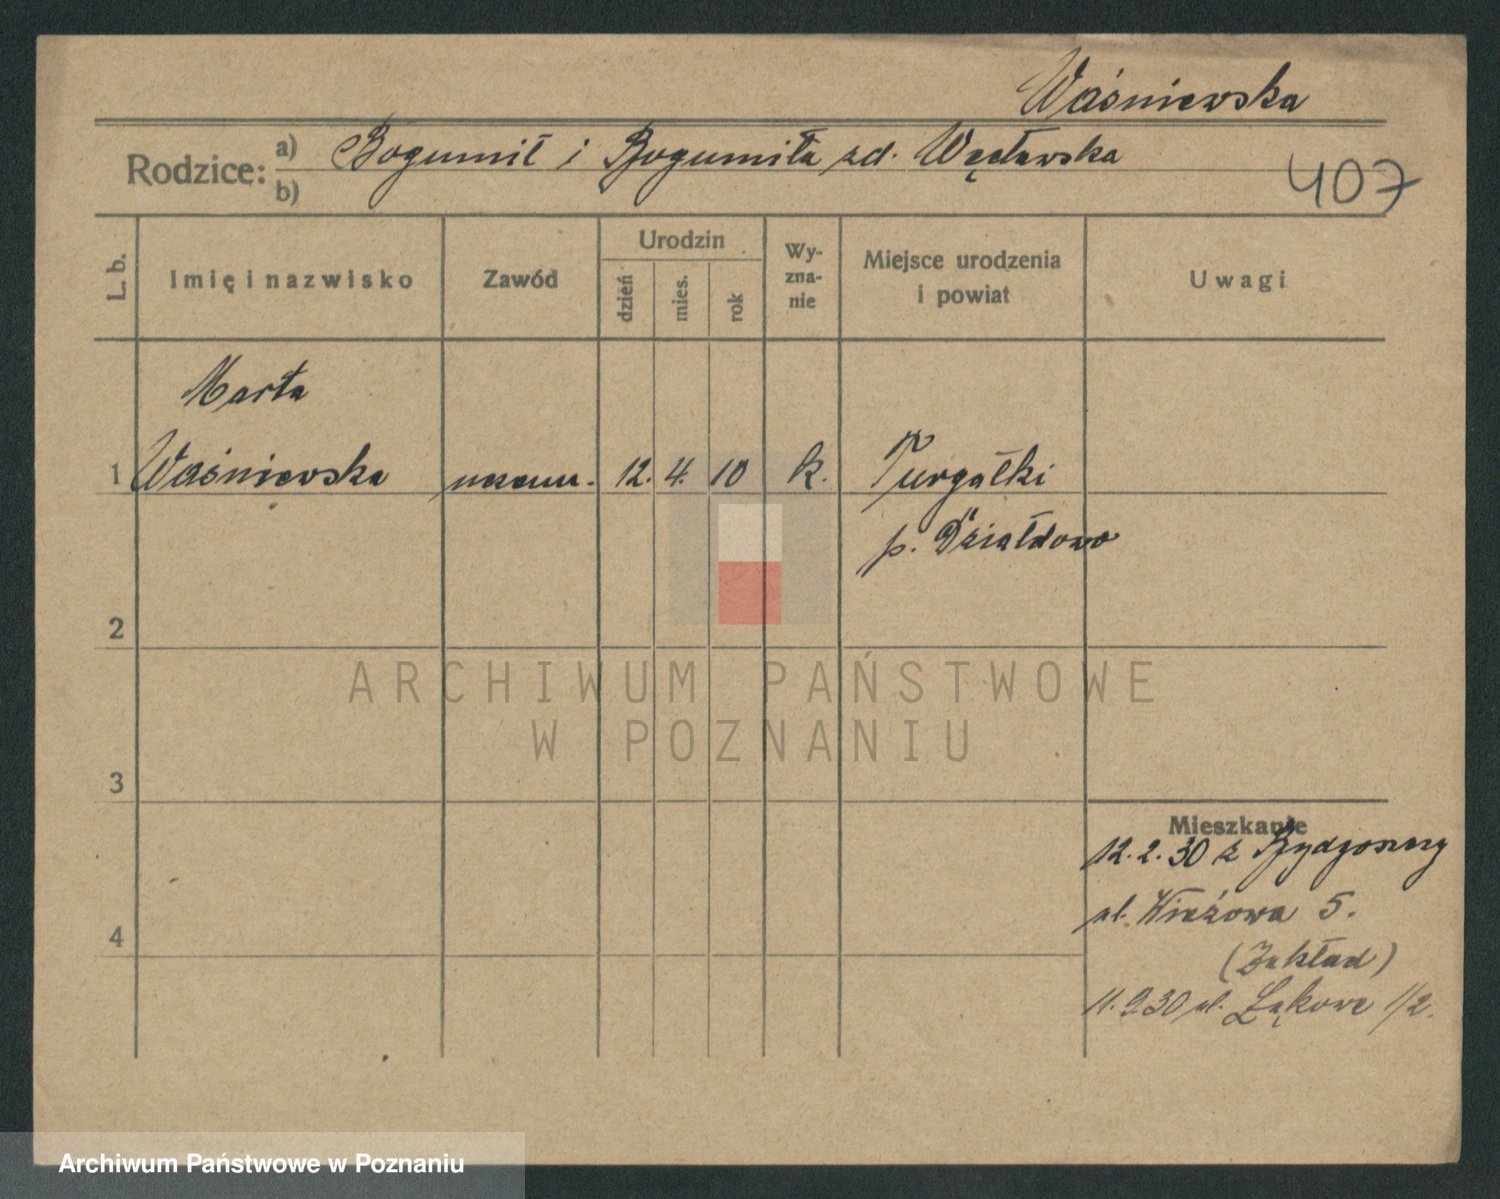 Waśniewska
Rodzice: a) Bogumił i Bogumiła zd. Węcławska
b)
407
L. b.
Imię i nazwisko
Zawód
Urodzin
dzień
mies.
rok
Wy-
zna-
nie
Miejsce urodzenia
i powiat
Uwagi
Marta
1 Waśniewska uczenn. 12. 4. 10 k. Turgałki
p. Działdowo
2
ARCHIWUM PAŃSTWOWE
W POZNANIU
3
Mieszkanie
12.2.30 z Bydgoszczy
ul. Wieżowa 5.
4
(Zakład)
11.9.30 ul. Łąkowa 1/2.
Archiwum Państwowe w Poznaniu